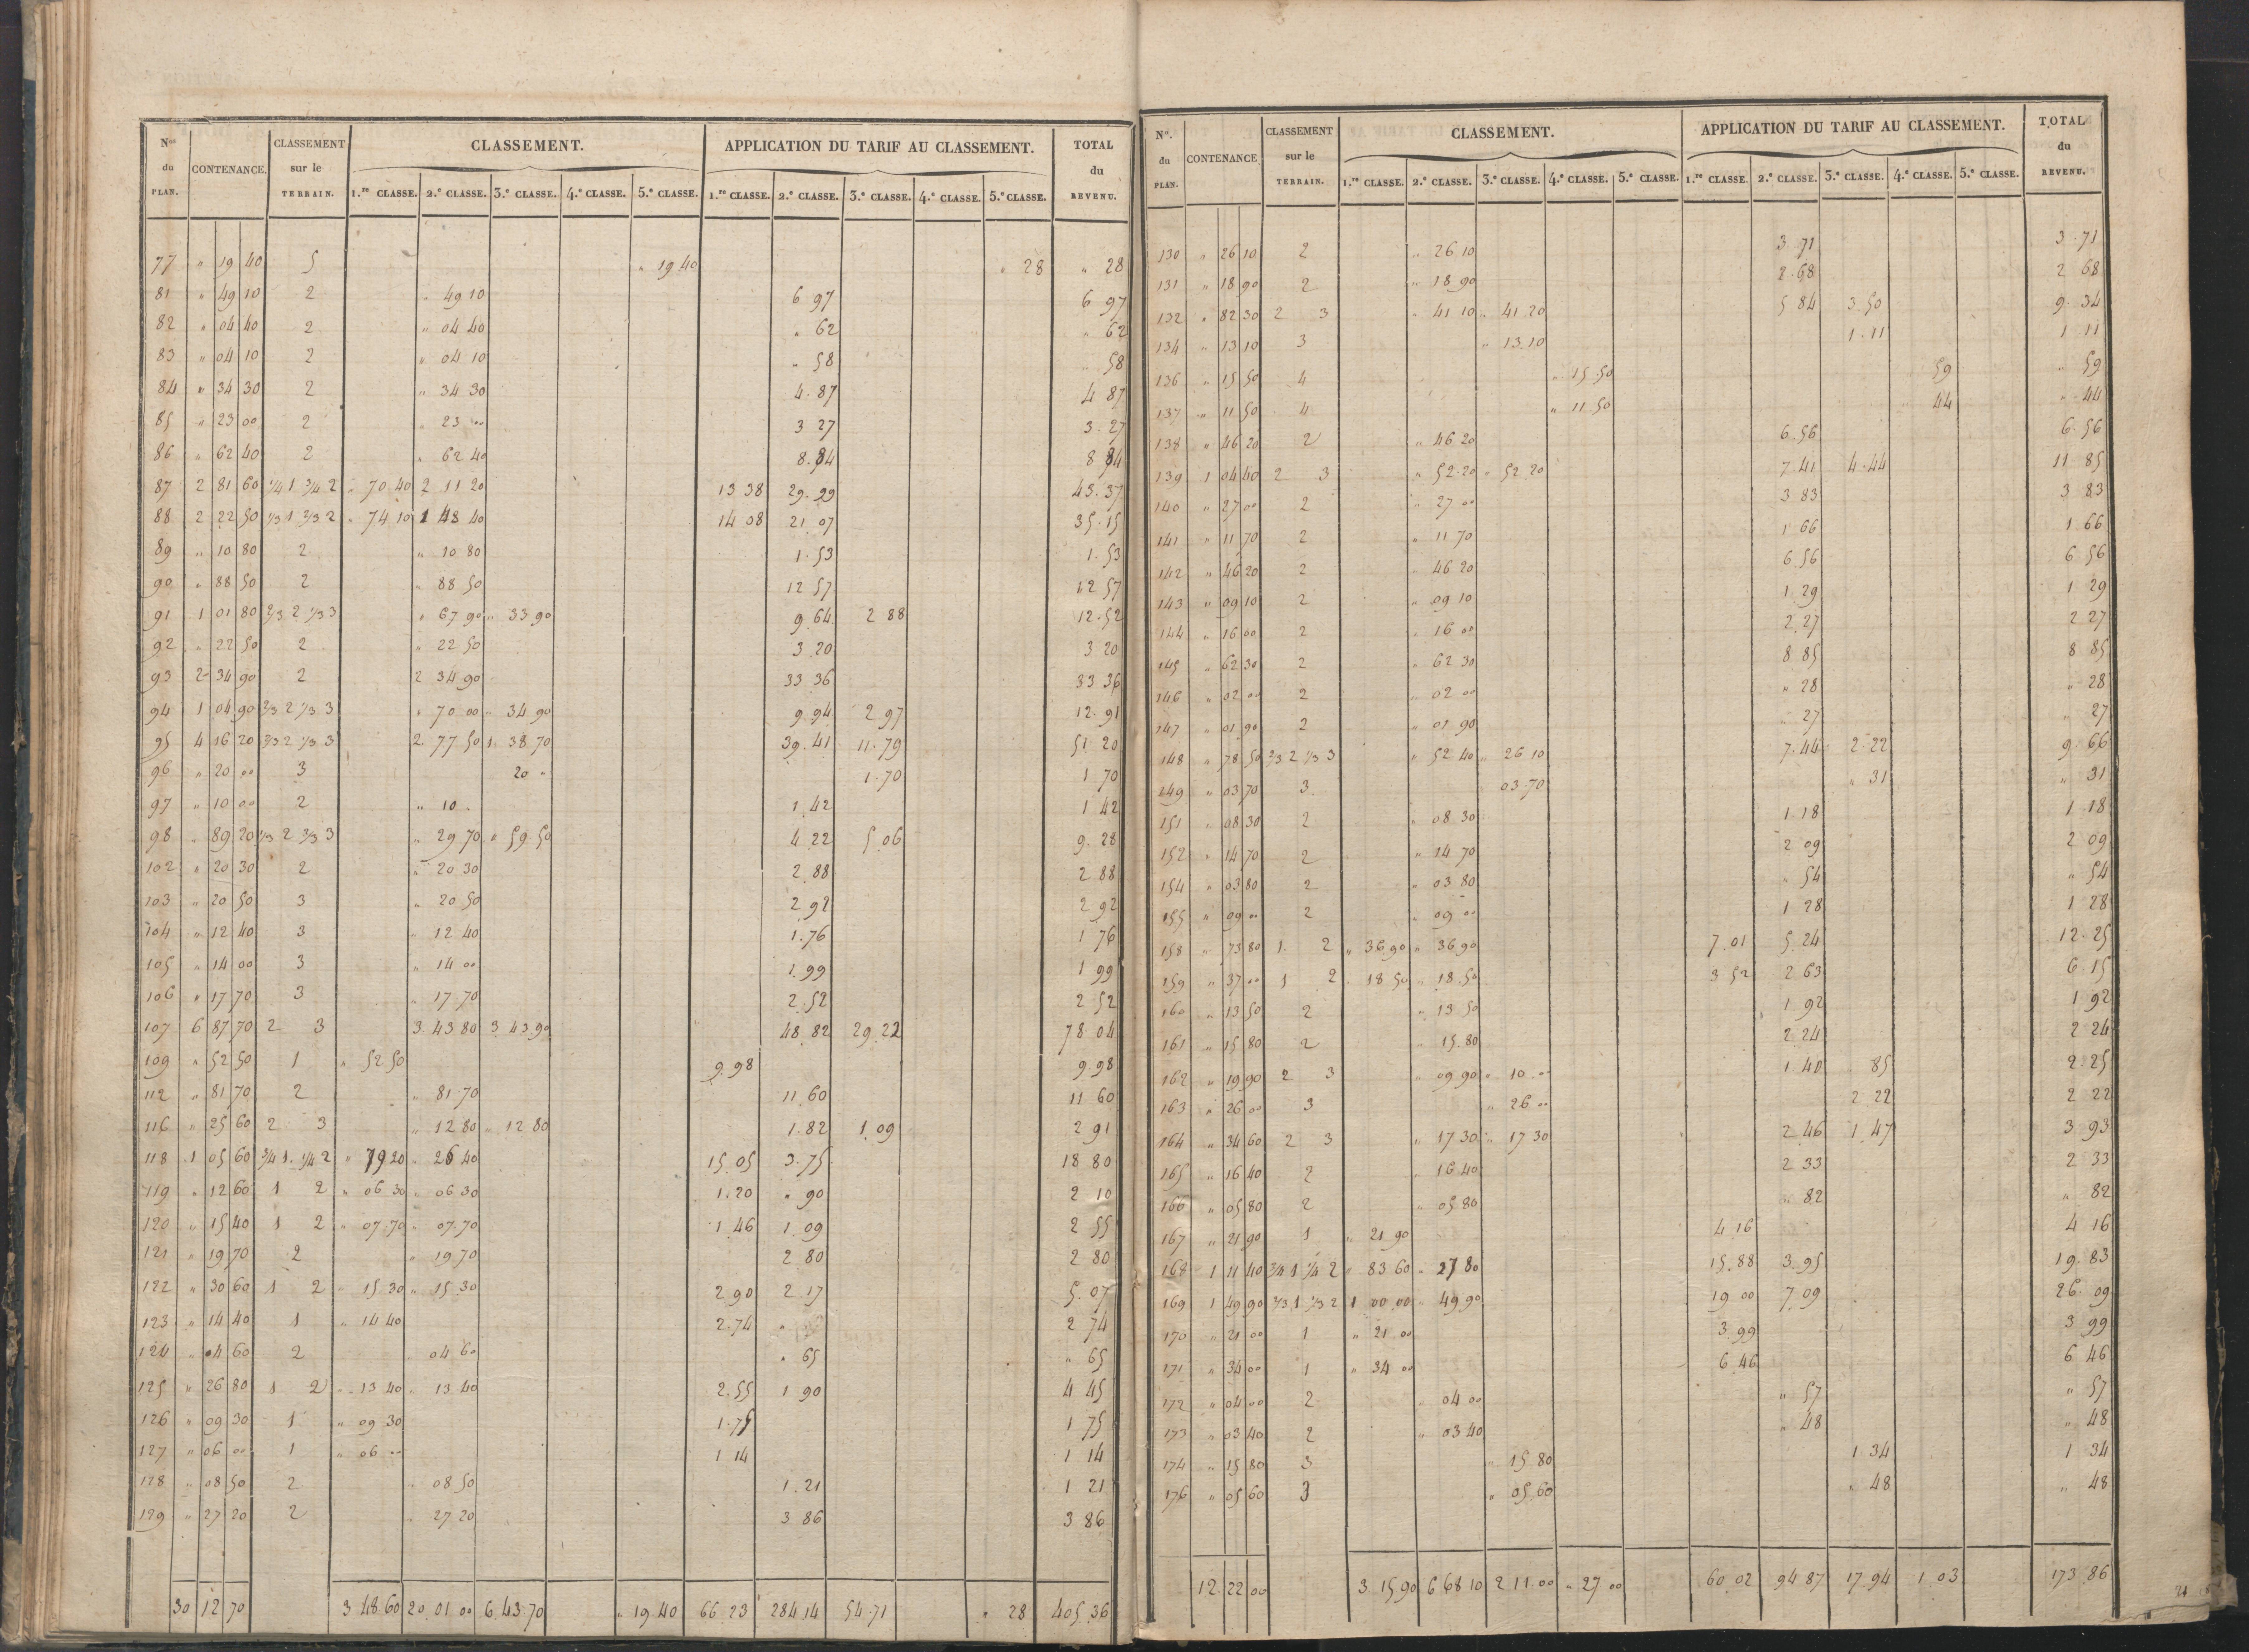 Nos du PLAN. CONTENANCE. CLASSEMENT sur le TERRAIN. CLASSEMENT. APPLICATION DU TARIF AU CLASSEMENT. TOTAL du REVENU.
1.re CLASSE. 2.e CLASSE. 3.e CLASSE. 4.e CLASSE. 5.e CLASSE. 1.re CLASSE. 2.e CLASSE. 3.e CLASSE. 4.e CLASSE. 5.e CLASSE.
77 " 19 40 5 " 19 40 " 28 " 28
81 " 49 10 2 " 49 10 6 97 6 97
82 " 04 40 2 " 04 40 " 62 " 62
83 " 04 10 2 " 04 10 " 58 " 58
84 " 34 30 2 " 34 30 4.87 4 87
85 " 23 00 2 " 23 " 3 27 3.27
86 " 62 40 2 " 62 40 8.84 8 84
87 2 81 60 1/4 1 3/4 2 " 70 40 2 11 20 13 38 29.99 43.37
88 2 22 50 1/3 1 2/3 2 " 74 10 1 48 40 14 08 21 07 35.15
89 " 10 80 2 " 10 80 1.53 1.53
90 " 88 50 2 " 88 50 12 57 12 57
91 1 01 80 2/3 2 1/3 3 " 67 90 " 33 90 9.64 2 88 12.52
92 " 22 50 2 " 22 50 3.20 3 20
93 2 34 90 2 2 34 90 33 36 33 36
94 1 04 90 2/3 2 1/3 3 " 70 00 " 34 90 9.94 2 97 12.91
95 4 16 20 2/3 2 1/3 3 2 77 50 1 38.70 39.41 11.79 51 20
96 " 20 00 3 20 " 1.70 1 70
97 " 10 00 2 " 10 . 1.42 1 42
98 " 89 20 1/3 2 2/3 3 " 29 70 " 59.50 4.22 5.06 9.28
102 " 20 30 2 " 20 30 2.88 2 88
103 " 20 50 3 " 20 50 2.92 2 92
104 " 12 40 3 " 12 40 1.76 1 76
105 " 14 00 3 " 14 00 1.99 1 99
106 " 17 70 3 " 17 70 2.52 2 52
107 6 87 70 2 3 3.43 80 3 43 90 48 82 29.22 78 04
109 " 52 50 1 " 52 50 9.98 9 98
112 " 81 70 2 " 81.70 11.60 11 60
116 " 25 60 2 3 " 12 80 " 12 80 1.82 1 09 2 91
118 1 05 60 3/4 1 1/4 2 " 79 20 " 26 40 15.05 3.75 18 80
119 " 12 60 1 2 " 06 30 " 06 30 1.20 " 90 2 10
120 " 15 40 1 2 " 07.70 " 07.70 1 46 1.09 2 55
121 " 19 70 2 " 19 70 2.80 2 80
122 " 30 60 1 2 " 15 30 " 15 30 2 90 2 17 5.07
123 " 14 40 1 " 14 40 2.74 " 2 74
124 " 04 60 2 " 04 60 " 65 " 65
125 " 26 80 1 2 " 13 40 " 13 40 2.55 1 90 4 45
126 " 09 30 1 " 09 30 1.75 1 75
127 " 06 00 1 " 06 00 1 14 1 14
128 " 08 50 2 " 08 50 1.21 1 21
129 " 27 20 2 " 27 20 3 86 3 86
30 12 70 3 48 60 20.01 00 6.43 70 " 19.40 66 23 284 14 54.71 " 28 405.36
No. du PLAN. CONTENANCE CLASSEMENT sur le TERRAIN. CLASSEMENT. APPLICATION DU TARIF AU CLASSEMENT. TOTAL du REVENU.
1.re CLASSE. 2.e CLASSE. 3.e CLASSE. 4.e CLASSE. 5.e CLASSE. 1.re CLASSE. 2.e CLASSE. 3.e CLASSE. 4.e CLASSE. 5.e CLASSE.
130 " 26 10 2 " 26 10 3.71 3.71
131 " 18 90 2 " 18 90 2.68 2 68
132 " 82 30 2 3 " 41 10 " 41 20 5 84 3.50 9.34
134 " 13 10 3 " 13.10 1.11 1 11
136 " 15 50 4 " 15.50 59 " 59
137 " 11 50 4 " 11 50 44 " 44
138 " 46 20 2 " 46 20 6.56 6.56
139 1 04 40 2 3 " 52.20 " 52 20 7.41 4.44 11 85
140 " 27 00 2 " 27 00 3 83 3 83
141 " 11 70 2 " 11 70 1 66 1.66
142 " 46 20 2 " 46 20 6.56 6 56
143 " 09 10 2 " 09 10 1.29 1 29
144 " 16 00 2 " 16 00 2.27 2 27
145 " 62 30 2 " 62 30 8 85 8 85
146 " 02 00 2 " 02 00 " 28 " 28
147 " 01 90 2 " 01 90 " 27 " 27
148 " 78 50 2/3 2 1/3 3 " 52 40 " 26 10 7.44 2.22 9.66
149 " 03 70 3 03.70 " 31 " 31
151 " 08 30 2 " 08 30 1.18 1.18
152 " 14 70 2 " 14 70 2 09 2 09
154 " 03 80 2 " 03 80 " 54 " 54
155 " 09 00 2 " 09 00 1 28 1 28
158 " 73 80 1. 2 " 36 90 " 36 90 7.01 5.24 12.25
159 " 37 00 1 2 " 18 50 " 18.50 3 52 2 63 6.15
160 " 13 50 2 " 13 50 1.92 1 92
161 " 15 80 2 " 15.80 2.24 2 24
162 " 19 90 2 3 " 09 90 " 10 00 1 40 85 2.25
163 " 26 00 3 " 26 00 2 22 2 22
164 " 34 60 2 3 " 17 30 " 17 30 2.46 1.47 3 93
165 " 16 40 2 " 16.40 2 33 2 33
166 " 05 80 2 " 05 80 " 82 " 82
167 " 21 90 1 " 21 90 4.16 4 16
168 1 11 40 3/4 1 1/4 2 " 83 60 " 27 80 15.88 3.95 19.83
169 1 49 90 2/3 1 1/3 2 1 00.00 " 49.90 19 00 7.09 26.09
170 " 21 00 1 " 21 00 3.99 3 99
171 " 34 00 1 " 34 00 6 46 6 46
172 " 04 00 2 04 00 " 57 " 57
173 " 03 40 2 " 03 40 " 48 " 48
174 " 15 80 3 " 15 80 1.34 1 34
176 " 05 60 3 " 05.60 " 48 " 48
12.22 00 3 15 90 6 68 10 2 11 00 " 27 00 60.02 94 87 17.94 1 03 173.86